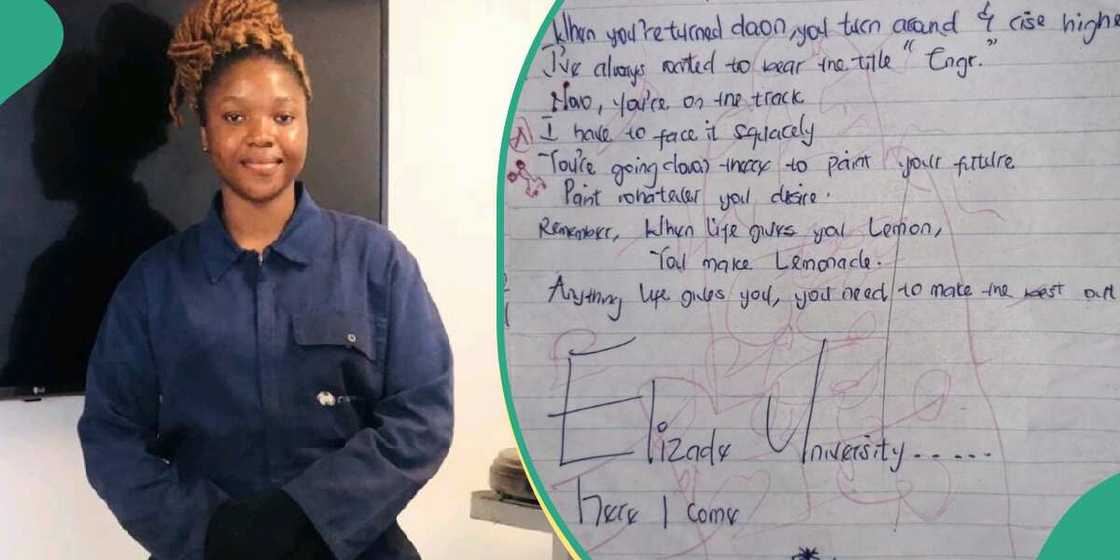 When you're turned down, you turn around & rise highe
I've always wanted to bear the title "Engr."
Now, you're on the track
I have to face it squarely
You're going down there to paint your future
Paint whatever you desire.
Remember, When life gives you Lemon,
You make Lemonade.
Anything life gives you, you need to make the best out
Elizade University......
here I come
LG